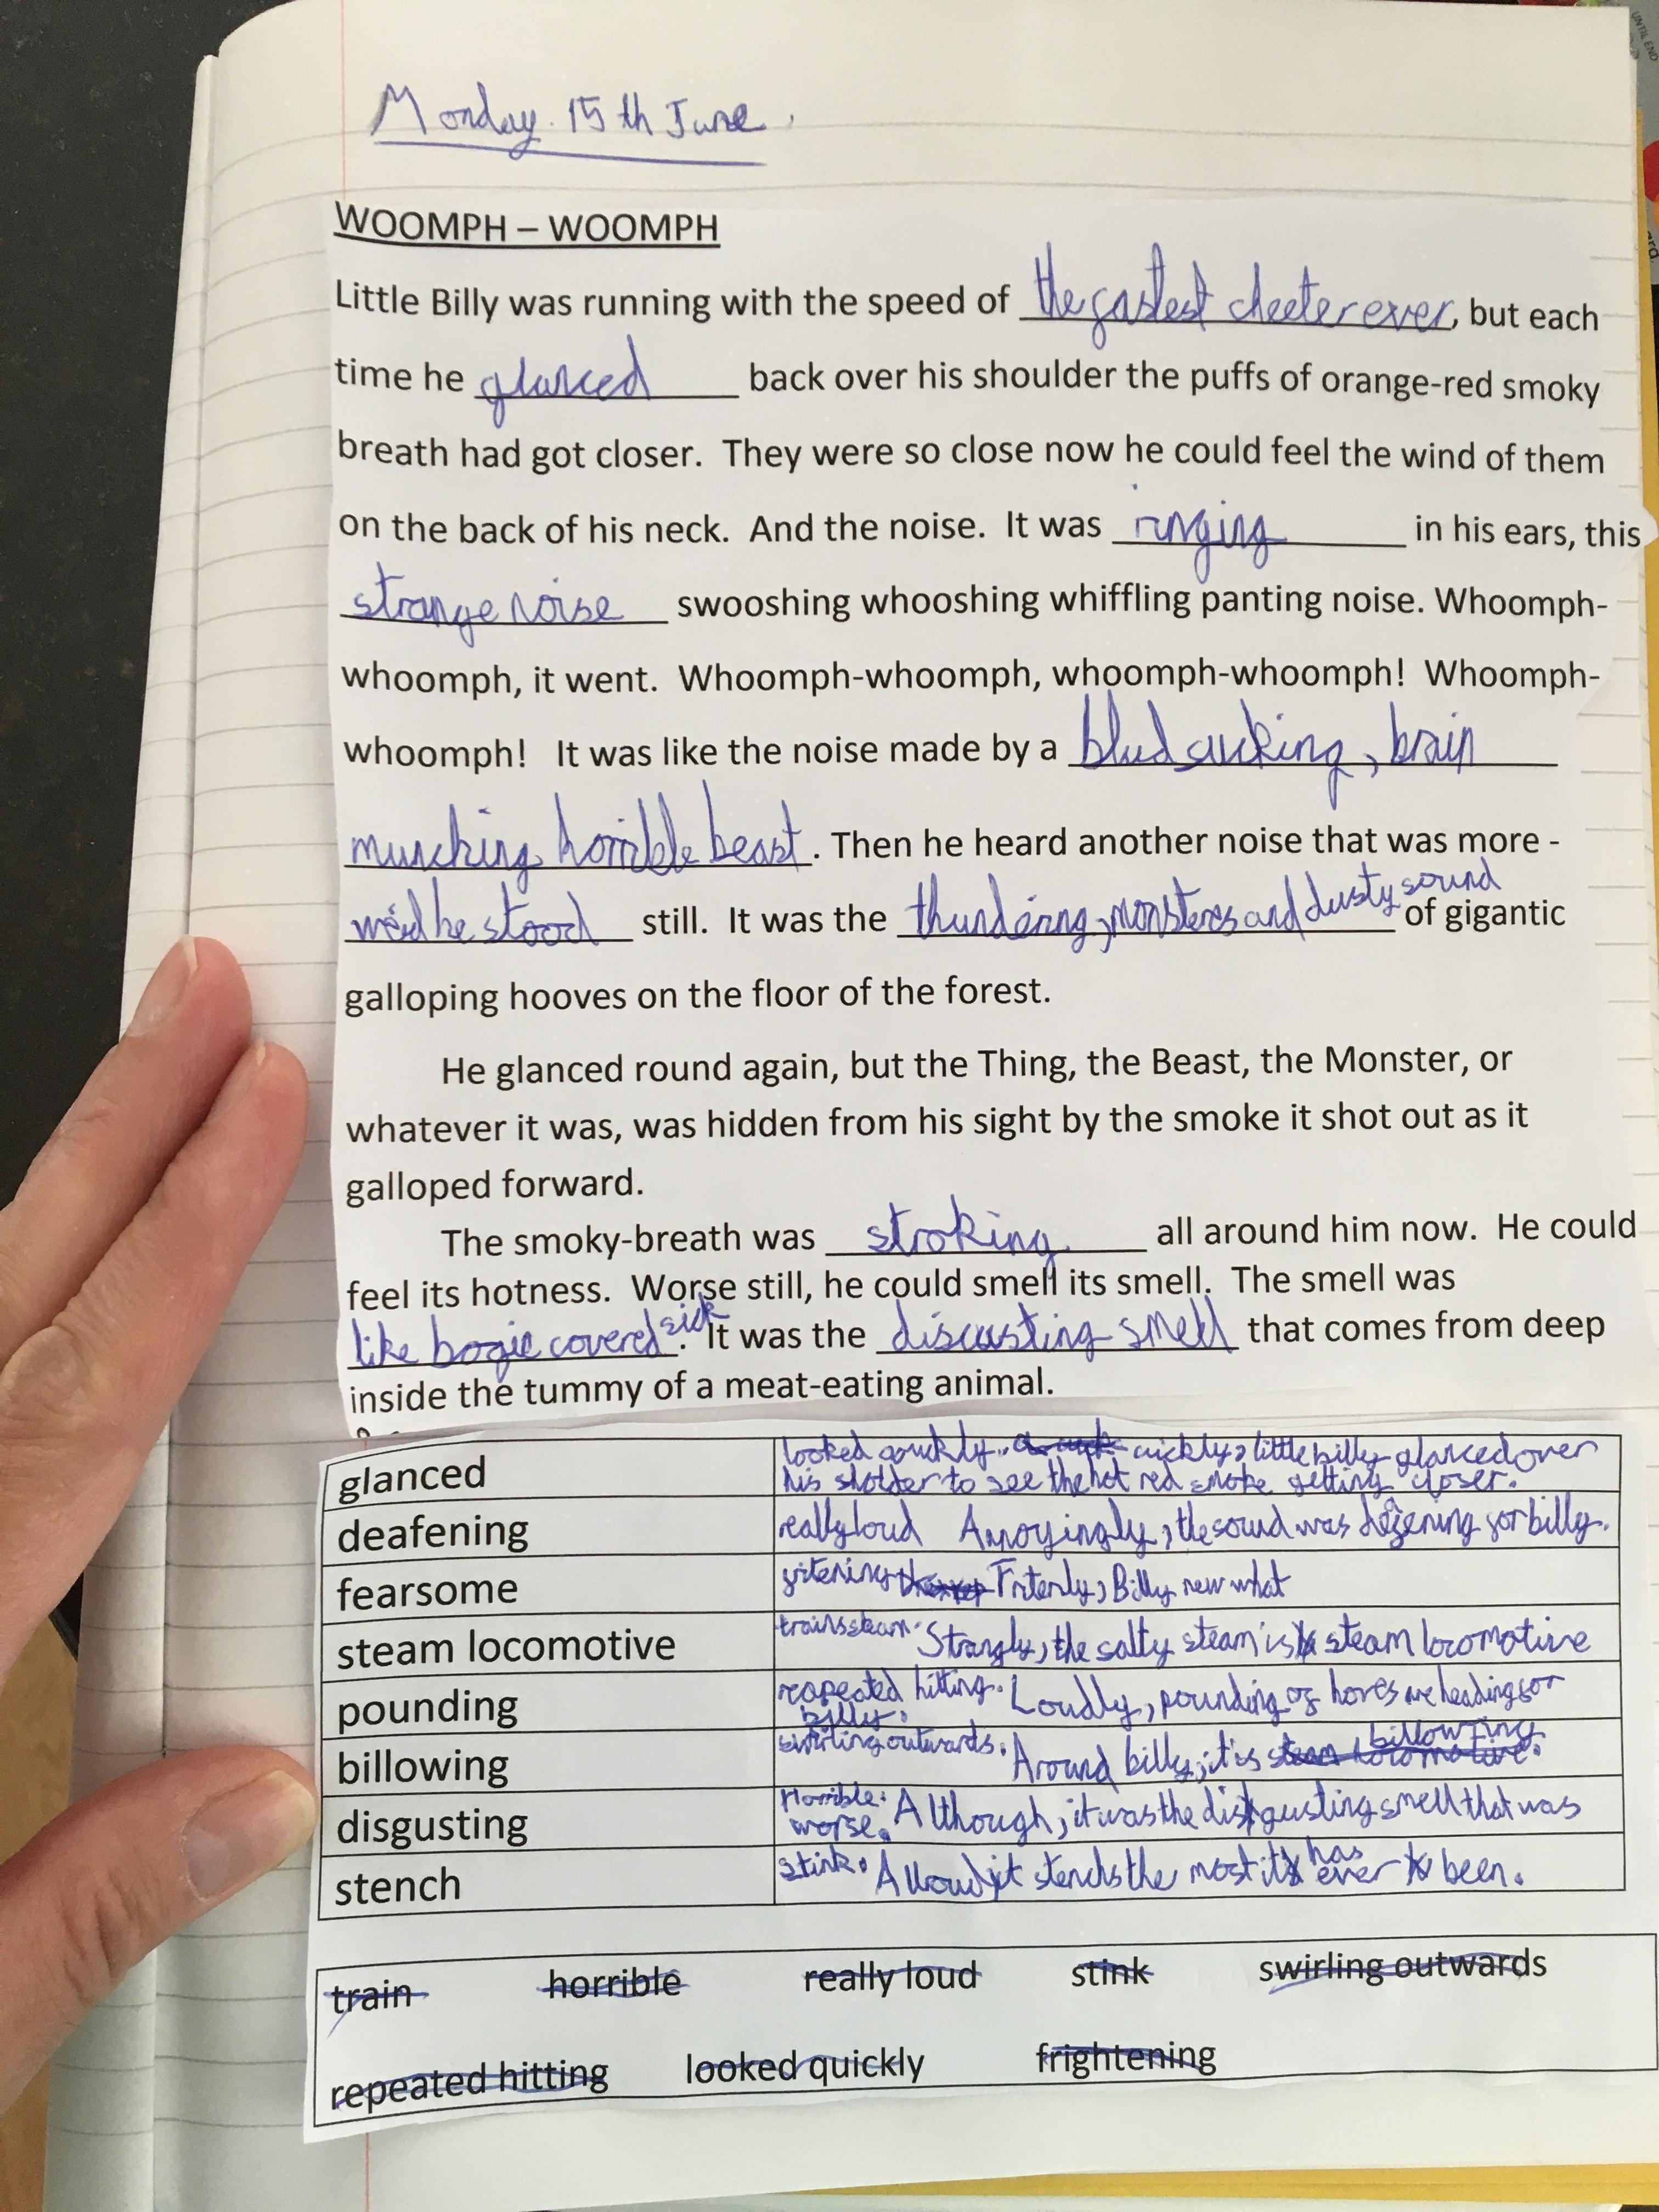 Monday. 15th June.
WOOMPH – WOOMPH
Little Billy was running with the speed of the fastest cheeter ever, but each
time he glanced back over his shoulder the puffs of orange-red smoky
breath had got closer. They were so close now he could feel the wind of them
on the back of his neck. And the noise. It was ringing in his ears, this
strange noise swooshing whooshing whiffling panting noise. Whoomph-
whoomph, it went. Whoomph-whoomph, whoomph-whoomph! Whoomph-
whoomph! It was like the noise made by a blud sucking, brain
munching horrible beast. Then he heard another noise that was more -
he stood still. It was the thundering, monsteres and dusty sound of gigantic
galloping hooves on the floor of the forest.
He glanced round again, but the Thing, the Beast, the Monster, or
whatever it was, was hidden from his sight by the smoke it shot out as it
galloped forward.
The smoky-breath was stroking all around him now. He could
feel its hotness. Worse still, he could smell its smell. The smell was
like bogie covered sick. It was the discusting smell that comes from deep
inside the tummy of a meat-eating animal.
glanced looked quickly. quickly, little billy glanced over
his sholder to see the hot red smoke getting closer.
deafening really loud Annoyingly, the sound was defening for billy.
fearsome fritening Fritenly, Billy new what
steam locomotive train steam. Strangly, the salty steam is steam locomotive
pounding repeated hitting. Loudly, pounding of hoves are heading for
billy.
billowing swirling outwards. Around billy, it is billowing.
disgusting Horrible. Although, it was the disgusting smell that was
worse.
stench stink. it stenchs the most it has ever been.
train horrible really loud stink swirling outwards
repeated hitting looked quickly frightening